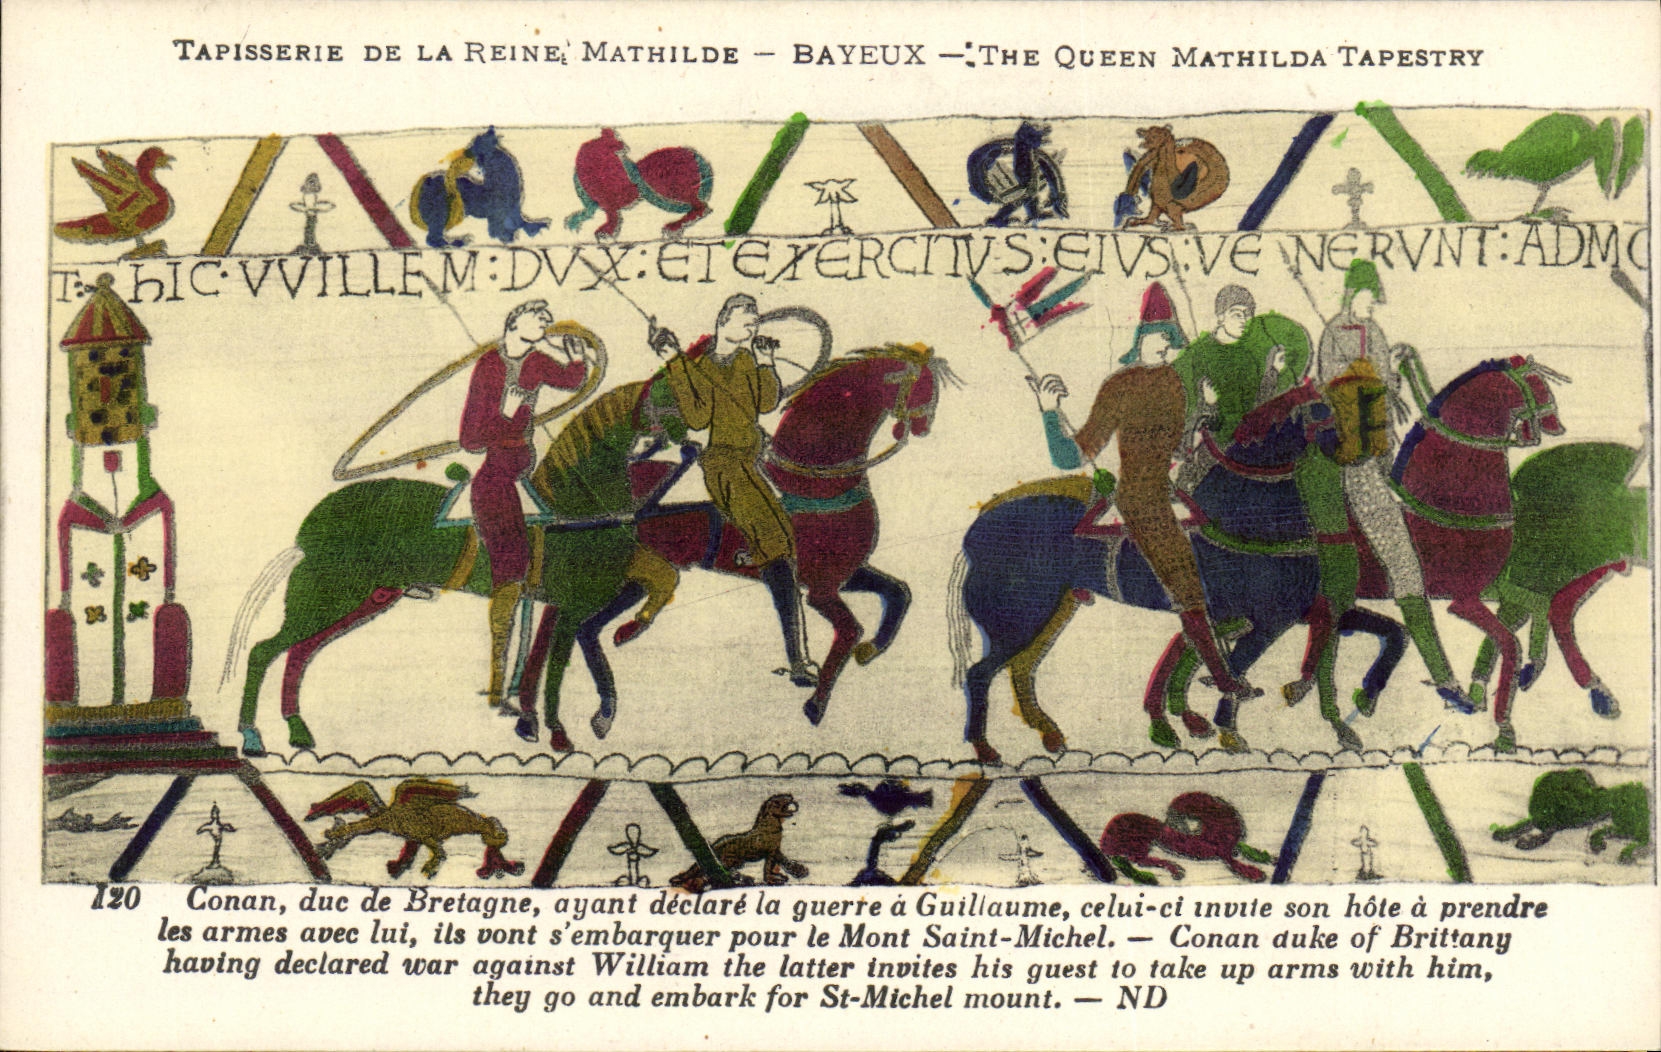 TAPISSERIE DE LA REINE MATHILDE — BAYEUX — THE QUEEN MATHILDA TAPESTRY
T: hIC · VVILLEM : DVX : ET EXERCITVS : EIVS : VENERVNT : AD MO
120 Conan, duc de Bretagne, ayant déclaré la guerre à Guillaume, celui-ci invite son hôte à prendre
les armes avec lui, ils vont s'embarquer pour le Mont Saint-Michel. — Conan duke of Brittany
having declared war against William the latter invites his guest to take up arms with him,
they go and embark for St-Michel mount. — ND